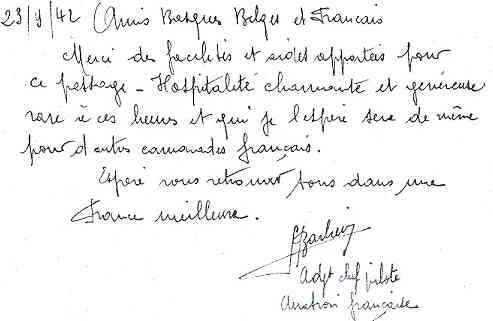 23/9/42 Amis Basques Belges et Francais
Merci des facilités et aides apportées pour
ce passage - Hospitalité charmante et généreuse
rare à ces heures et qui je l'espère sera de même
pour d'autres camarades français.
Espère vous retrouver tous dans une
France meilleure.
Adjt chef pilote
Aviation française